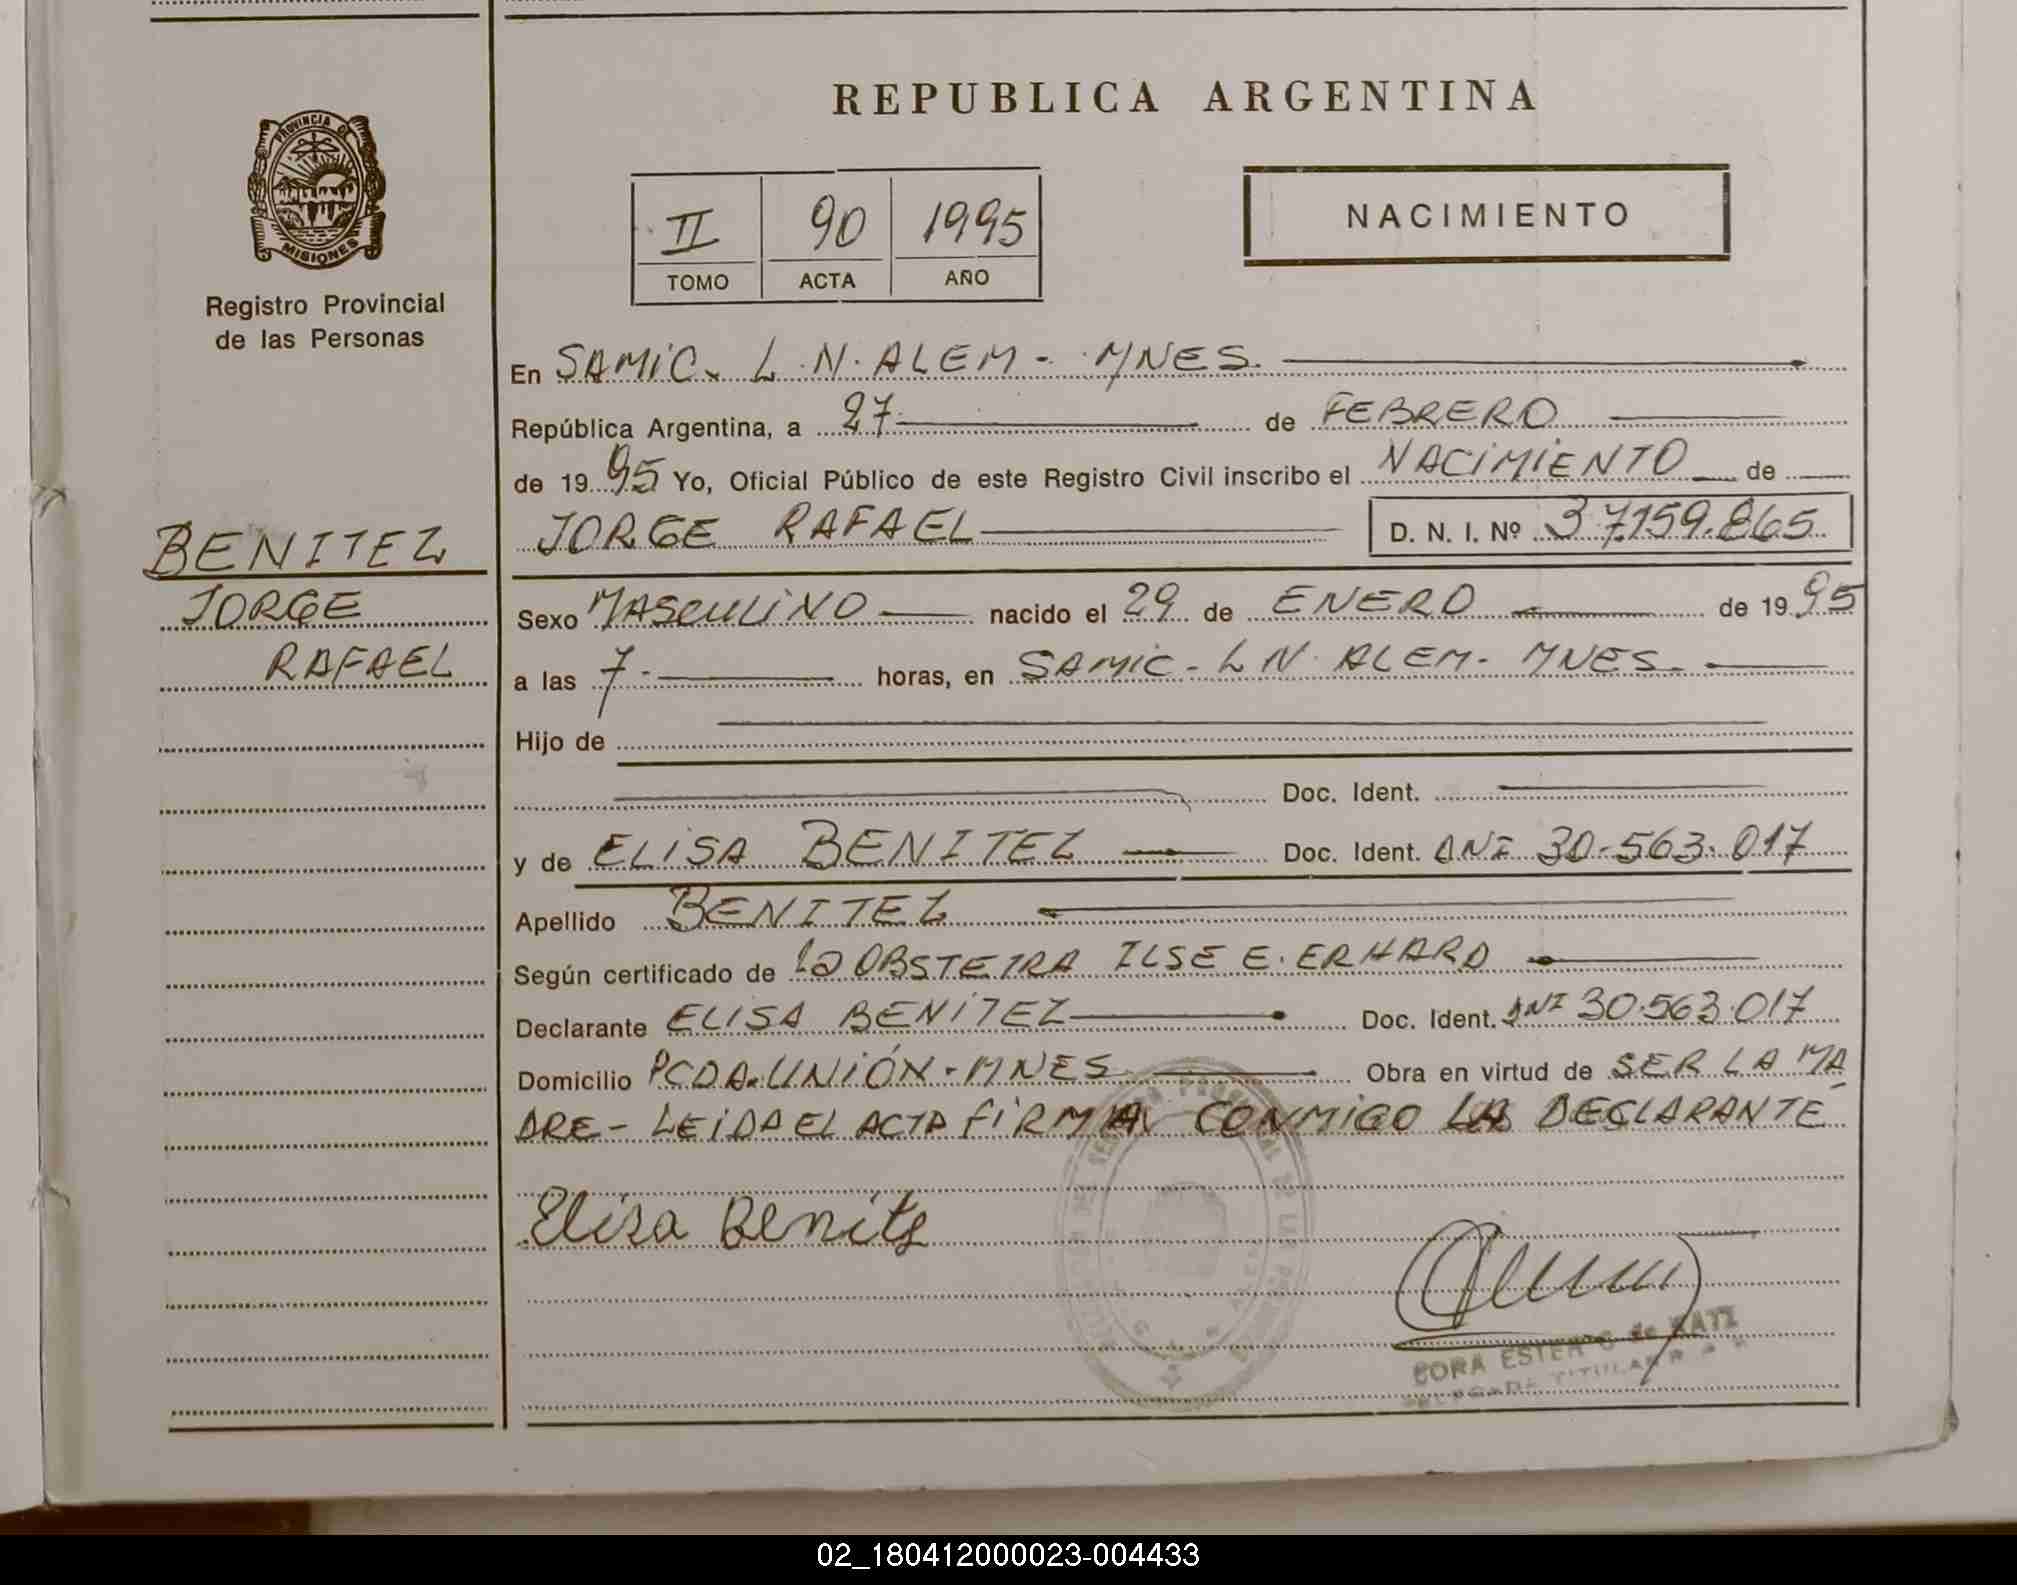 REPUBLICA ARGENTINA
PROVINCIA DE
MISIONES
Registro Provincial
de las Personas
II 90 1995
TOMO ACTA AÑO
NACIMIENTO
En SAMIC. L.N. ALEM - MNES.
República Argentina, a 27 de FEBRERO
de 1995 Yo, Oficial Público de este Registro Civil inscribo el NACIMIENTO de
JORGE RAFAEL D. N. I. Nº 37.159.865
BENITEZ
JORGE
RAFAEL
Sexo MASCULINO nacido el 29 de ENERO de 1995
a las 7 horas, en SAMIC - L N. ALEM - MNES.
Hijo de
Doc. Ident.
y de ELISA BENITEZ Doc. Ident. DNI 30.563.017
Apellido BENITEZ
Según certificado de la OBSTETRA ILSE E. ERHARD
Declarante ELISA BENITEZ Doc. Ident. DNI 30.563.017
Domicilio PCDA. UNIÓN - MNES Obra en virtud de SER LA MA
DRE - LEIDA EL ACTA FIRMA CONMIGO LA DECLARANTE
Elisa Benitz
ESTER G de KATZ
TITULAR
02_180412000023-004433